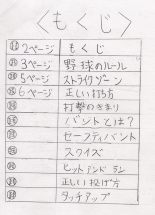 <もくじ>
2ページ もくじ
3ページ 野球のルール
5ページ ストライクゾーン
6ページ 正しい打ち方
打撃のきまり
バントとは?
セーフティバント
スクイズ
ヒットエンドラン
正しい投げ方
タッチアップ